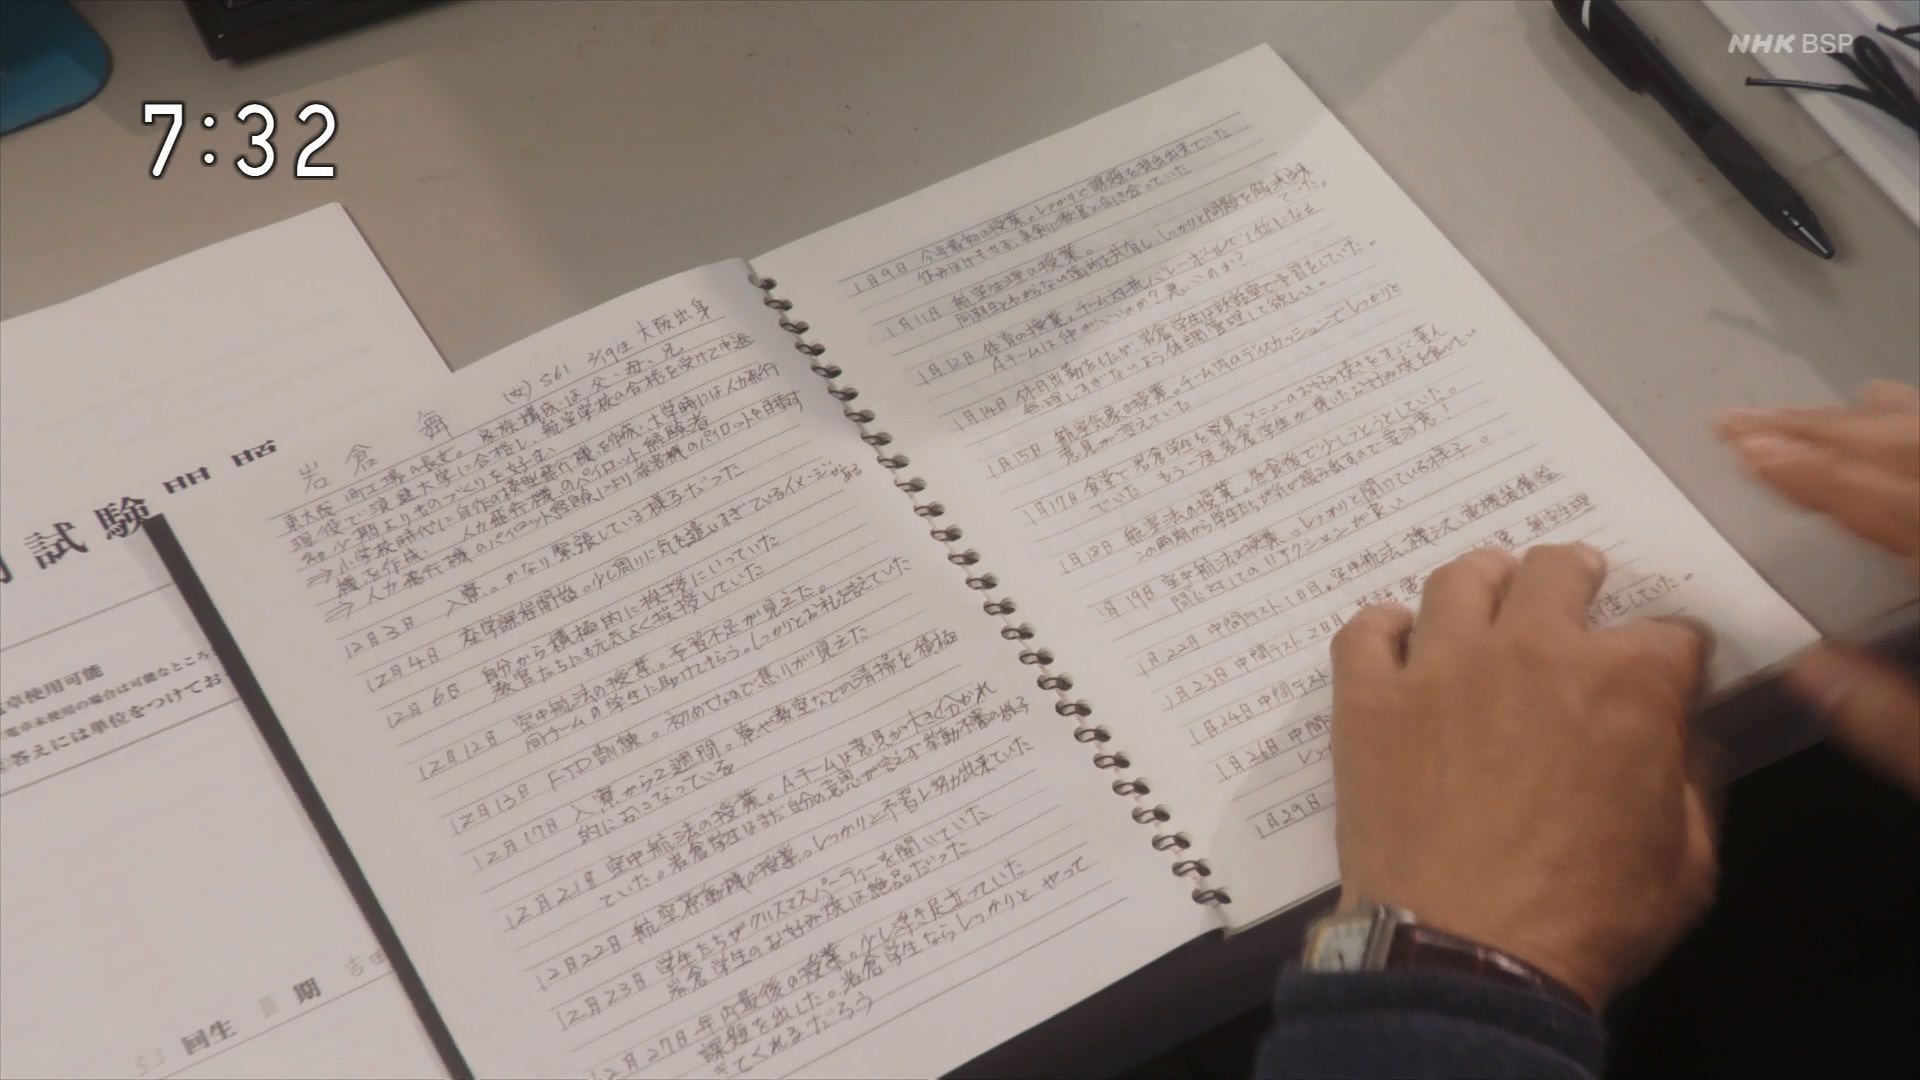 7:32
NHK BSP
試験問題
卓使用可能
電卓未使用の場合は可能なところ
答えには単位をつけてお
53 回生 期 吉田
岩倉 舞 (女) S61 2/19生 大阪出身
東大阪 町工場の長女。家族構成は父・母・兄
現役で浪速大学に合格し、航空学校の合格を受けて中退
幼少期よりものづくりを好み、
⇒ 小学校時代に自作の模型飛行機を作成・大学時には人力飛行
機を作成、人力飛行機のパイロット経験者
⇒ 人力飛行機のパイロット経験により旅客機のパイロットを目指す
12月3日 入寮。かなり緊張している様子だった
12月4日 座学課程開始。少し周りに気を遣いすぎているイメージがある
12月6日 自分から積極的に挨拶にいっていた
教官たちにも元気よく挨拶していた
12月12日 空中航法の授業。予習不足が見えた。
同チームの学生に助けてもらう。しっかりとお礼を言えていた
12月13日 FTD訓練。初めてなので焦りが見えた
12月17日 入寮から2週間。寮や教室などの清掃を積極
的におこなっている
12月21日 空中航法の授業。Aチームは意見が大きく分かれ
ていた。岩倉学生はまだ自分の意思が言えず挙動不審の様子
12月22日 航空原動機の授業。しっかりと予習し努力出来ていた
12月23日 学生たちがクリスマスパーティーを開いていた
岩倉学生のお好み焼は絶品だった
12月27日 年内最後の授業。少し浮き足立っていた
課題を出した。岩倉学生ならしっかりと やって
きてくれるだろう
1月9日 今年最初の授業。しっかりと課題を提出出来ていた
休みぼけもせず、真剣に教官と向き合っていた
1月11日 航空生理の授業。
同期生とわからない箇所を共有し、しっかりと問題を解決出来
ていた。
1月12日 体育の授業。チーム対抗バレーボールで1位になる
Aチームは仲がいいのか?悪いのか?
1月14日 休日出勤をしたが、岩倉学生は教室で予習をしていた。
無理しすぎないよう体調管理して欲しい。
1月15日 航空気象の授業。チーム内のディスカッションでしっかりと
意見が言えていた
1月17日 食堂で岩倉学生を発見。メニューのお好み焼きをすごく喜ん
でいた もう一度岩倉学生が焼いたお好み焼を食べたい
1月18日 航空法の授業。昼食後で少しうとうとしていた。
この時期から学生たちが気が緩み出すので要注意!
1月19日 空中航法の授業。しっかりと聞けている様子。
問に対してのリアクションが良い
1月22日 中間テスト1日目。空中航法、機シス、
1月23日 中間テスト2日目。航空生理
1月24日 中間テスト
1月26日 中間
しっ
1月29日